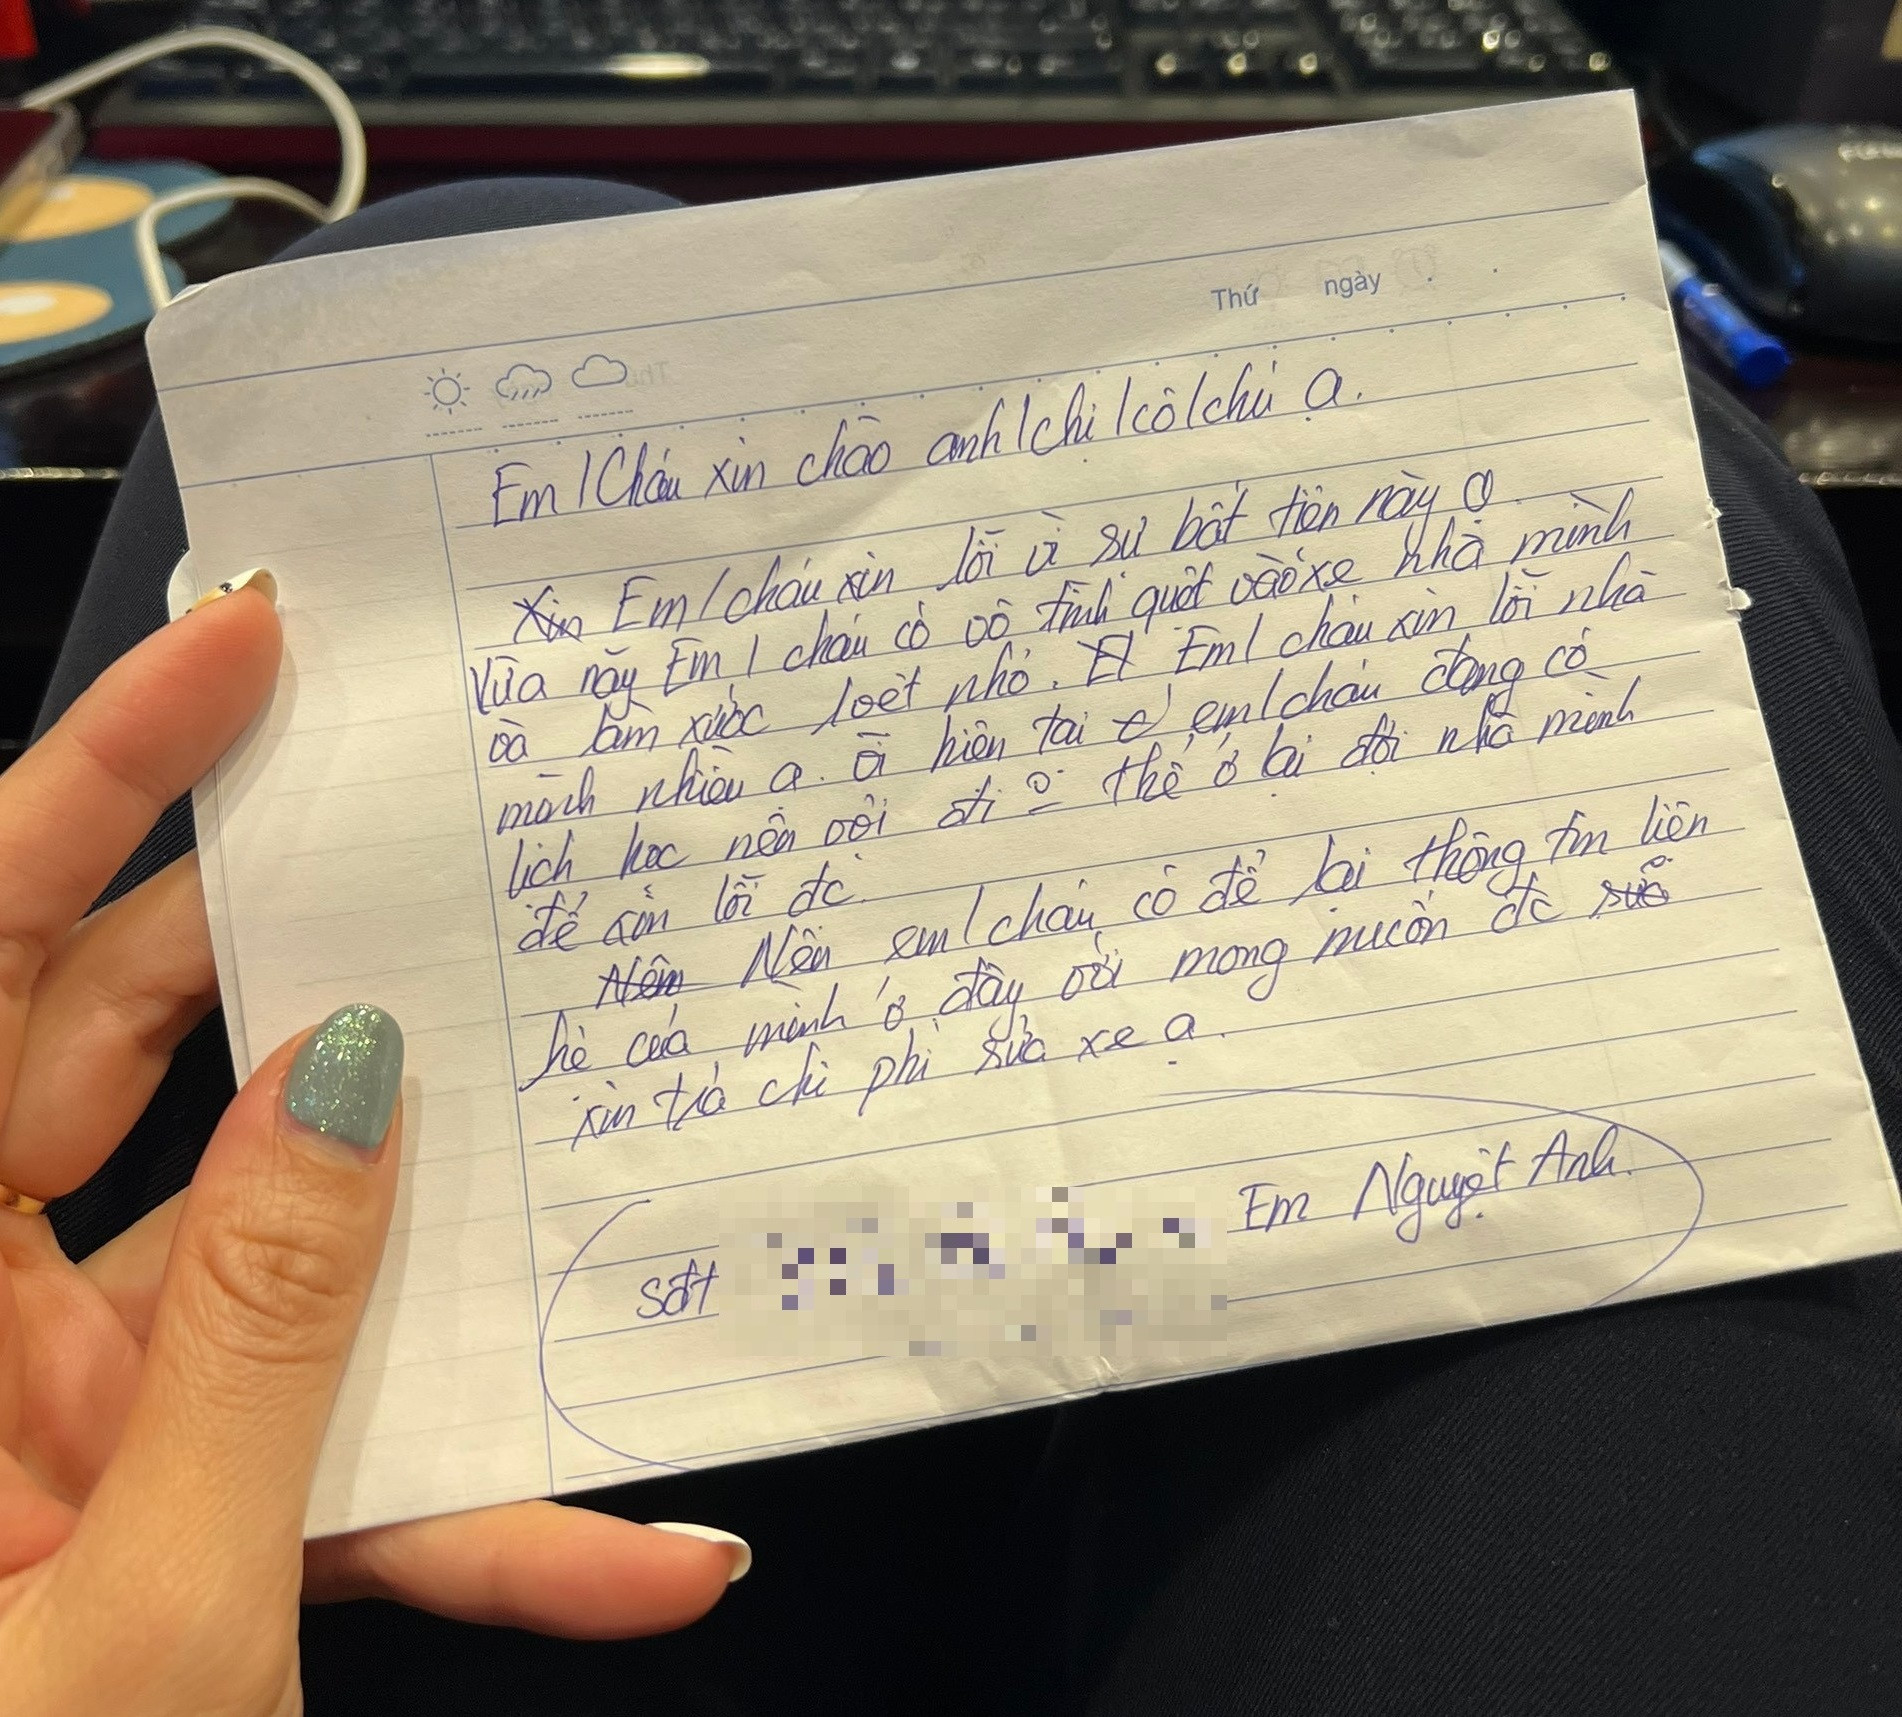 Thứ ngày
Em/Cháu xin chào anh/chị/cô/chú ạ.
Xin Em/cháu xin lỗi vì sự bất tiện này ạ.
Vừa nãy Em/cháu có vô tình quệt vào xe nhà mình
và làm xước loét nhỏ. El Em/cháu xin lỗi nhà
mình nhiều ạ. Vì hiện tại em/cháu đang có
lịch học nên vội đi thể ở lại đợi nhà mình
để xin lỗi đc.
Nên Nên em/cháu có để lại thông tin liên
hệ của mình ở đây với mong muốn đc sửa
xin trả chi phí sửa xe ạ.
Em Nguyệt Anh.
sđt